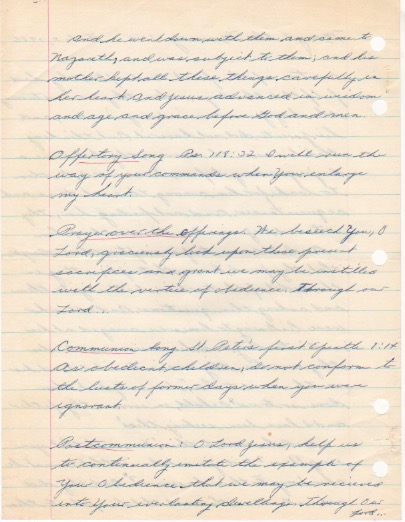 And he went down with them and came to
Nazareth, and was subject to them; and his
mother kept all these things carefully in
her heart. And Jesus advanced in wisdom
and age and grace before God and men.
Offertory Song Ps. 118:32 I will run the
way of your commands when You enlarge
my heart.
Prayer over the Offerings. We beseech You, O
Lord, graciously look upon these present
sacrifices and grant we may be instilled
with the virtue of obedience. Through our
Lord...
Communion Song St. Peter's first Epistle 1:14
As obedient children, do not conform to
the lusts of former days when you were
ignorant.
Postcommunion: O Lord Jesus, help us
to continually imitate the example of
Your Obedience, that we may be received
into Your everlasting dwellings. Through Our
Lord...